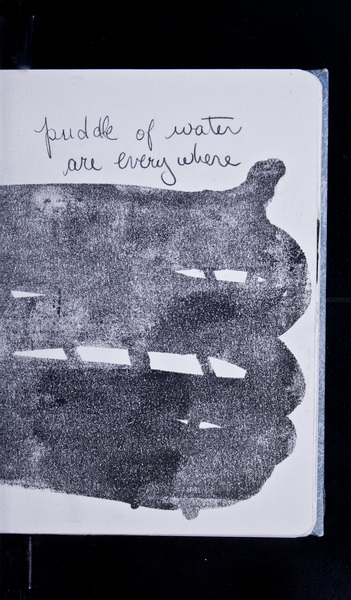 puddle of water
are every where